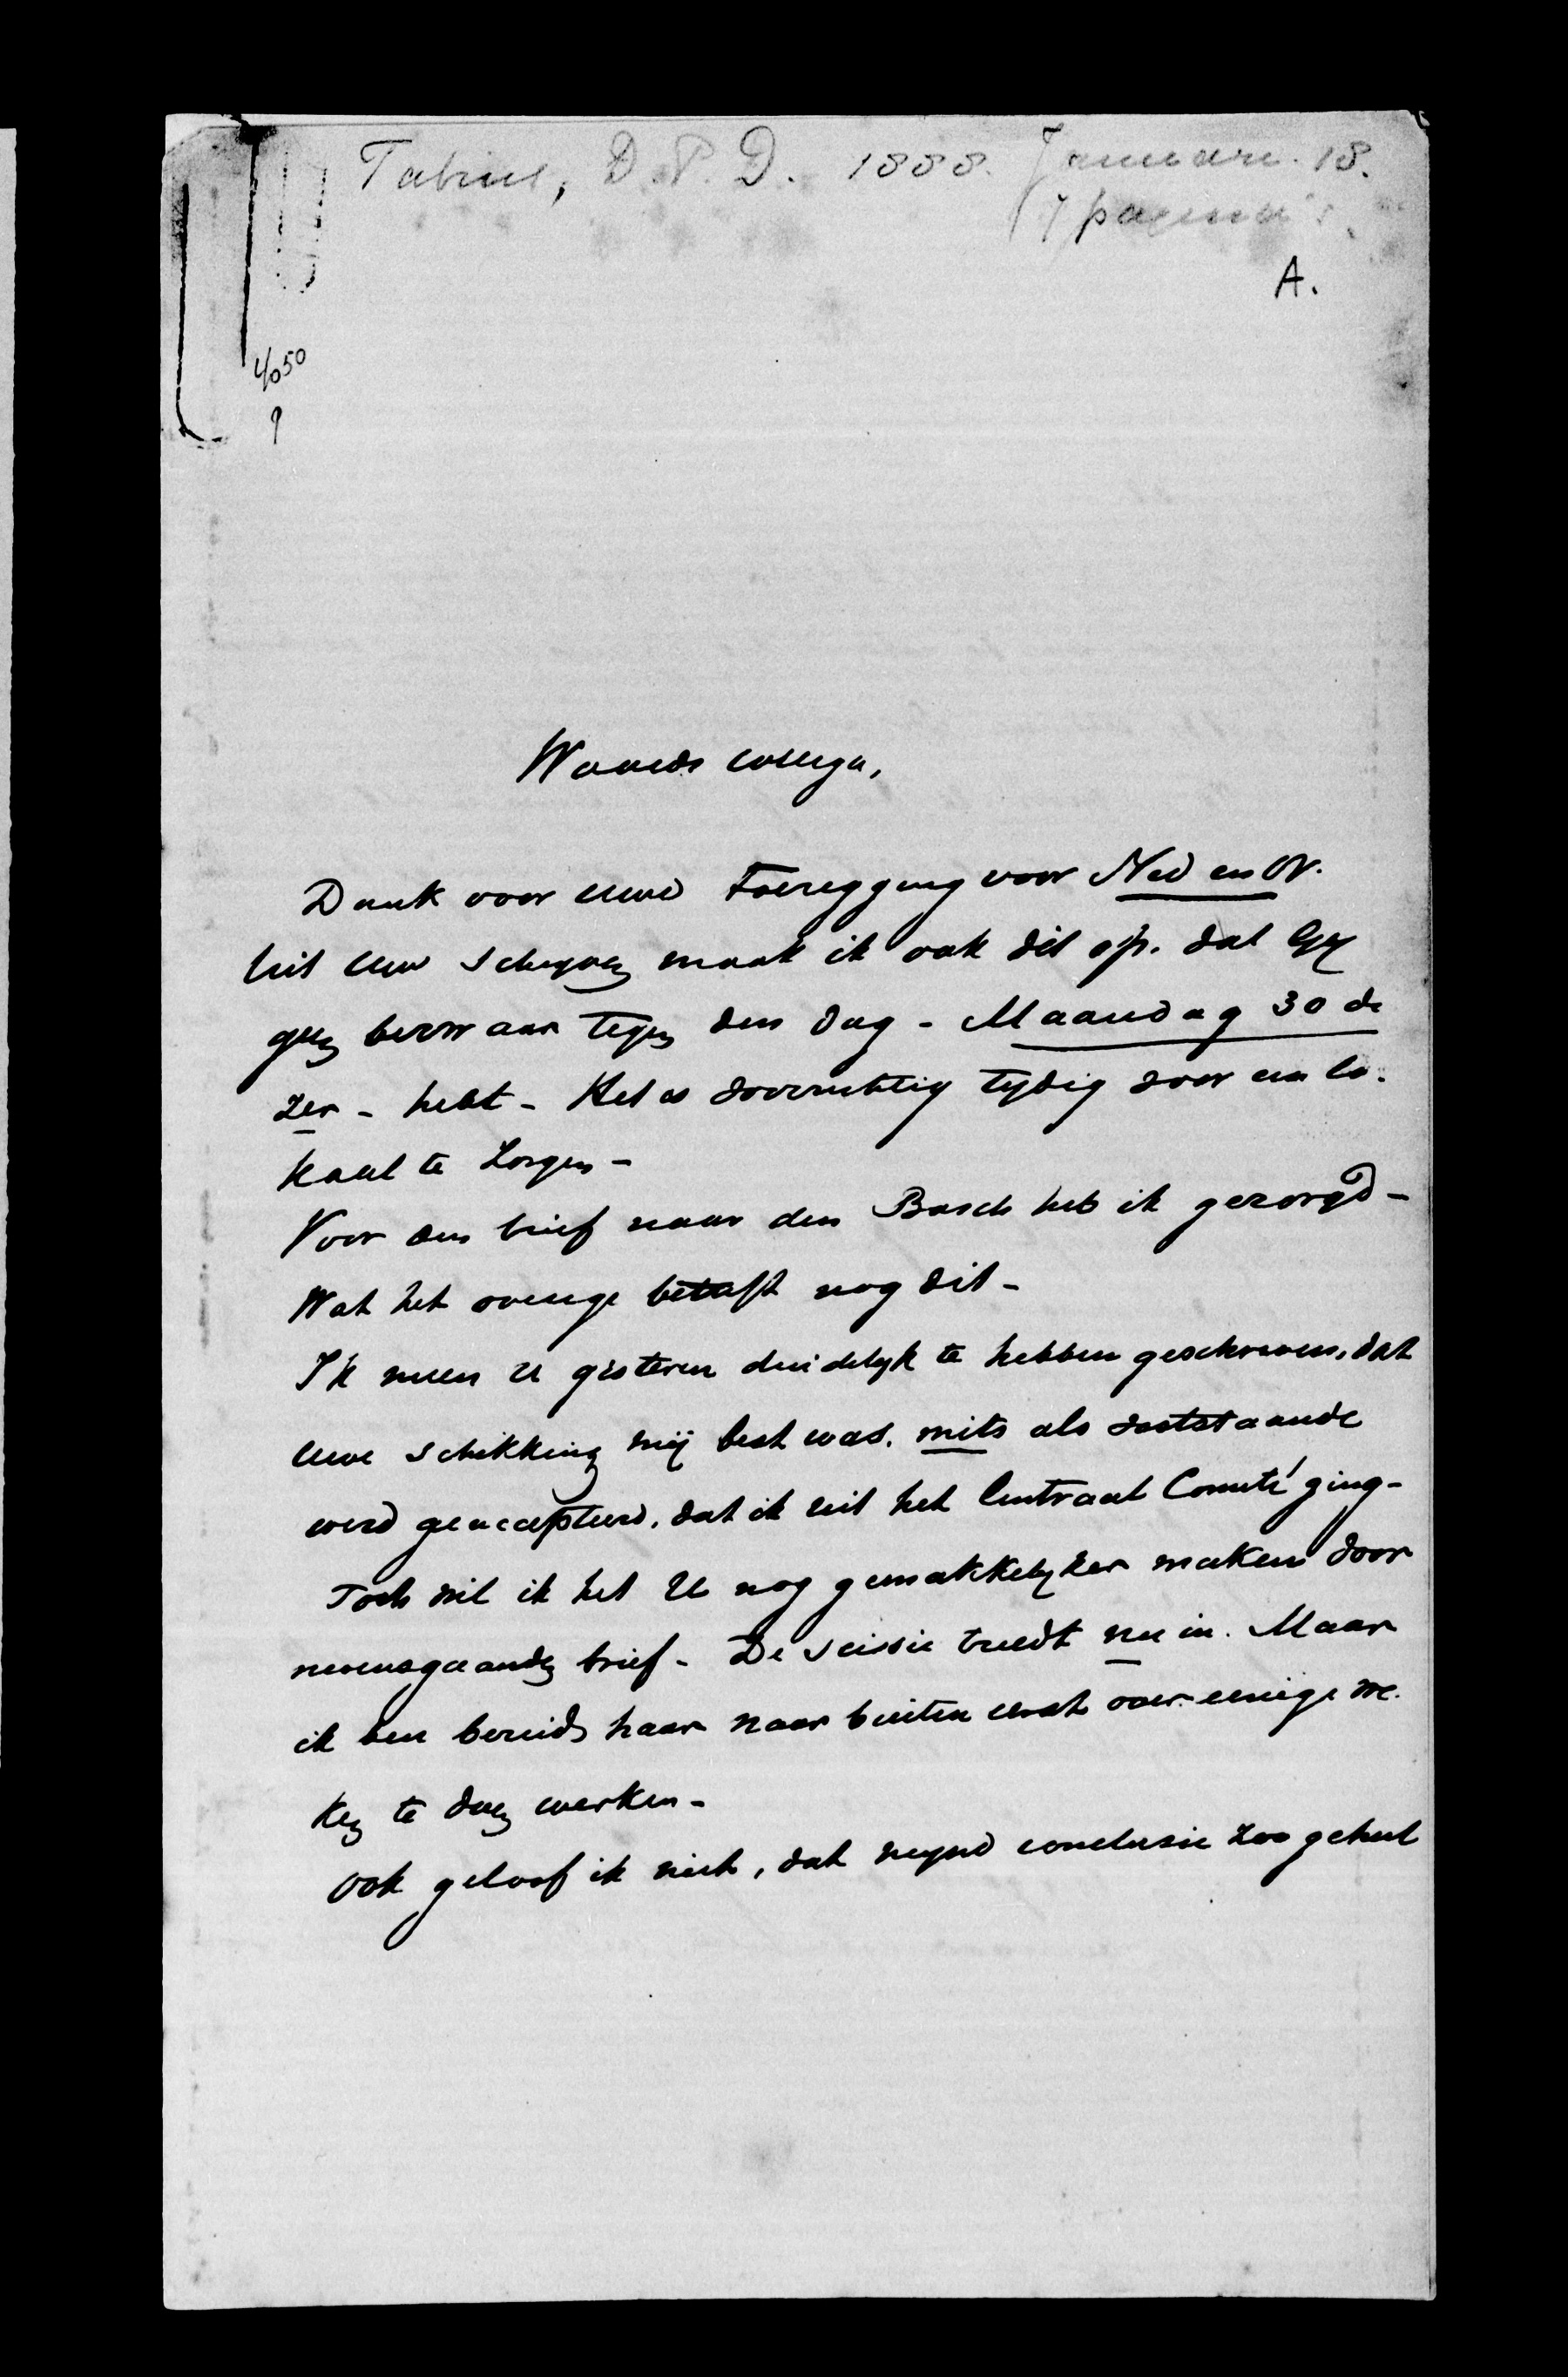 Fabius, D.P.D. 1888. Januari. 18.
7 pagina's.
A.
4050
Waarde collega,
Dank voor uwe toezegging voor Ned en Or.
Uit uw schrijven maak ik ook dit op. dat Gy
geen bezwaar tegen den dag - Maandag 30 de
zer - hebt - Het is voorzichtig tydig voor een lo.
kaal te zorgen -
Voor den brief naar den Bosch heb ik gezorgd -
Wat het overige betreft nog dit -
Ik meen U gisteren duidelyk te hebben geschreven, dat
uwe schikking mij best was. mits als vaststaande
werd geaccepteerd, dat ik uit het Centraal Comité ging -
Toch wil ik het U nog gemakkelyker maken door
nevensgaanden brief - De scissie treedt nu in. Maar
ik ben bereid haar naar buiten eerst over eenige we.
ken te doen werken -
Ook geloof ik niet, dat mynd conclusie zoo geheel